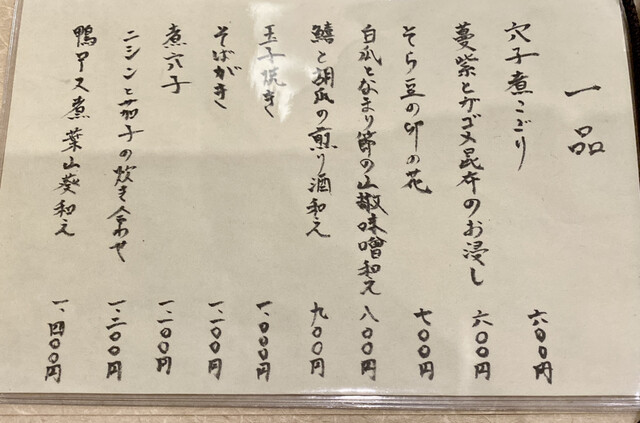 一品
穴子煮こごり 六〇〇円
蔓紫とガゴメ昆布のお浸し 六〇〇円
そら豆の卯の花 七〇〇円
白瓜となまり節の山椒味噌和え 八〇〇円
鱚と胡瓜の煎り酒和え 九〇〇円
玉子焼き 一、〇〇〇円
そばがき 一、一〇〇円
煮穴子 一、二〇〇円
ニシンと茄子の炊き合わせ 一、三〇〇円
鴨ロース煮 葉山葵和え 一、四〇〇円